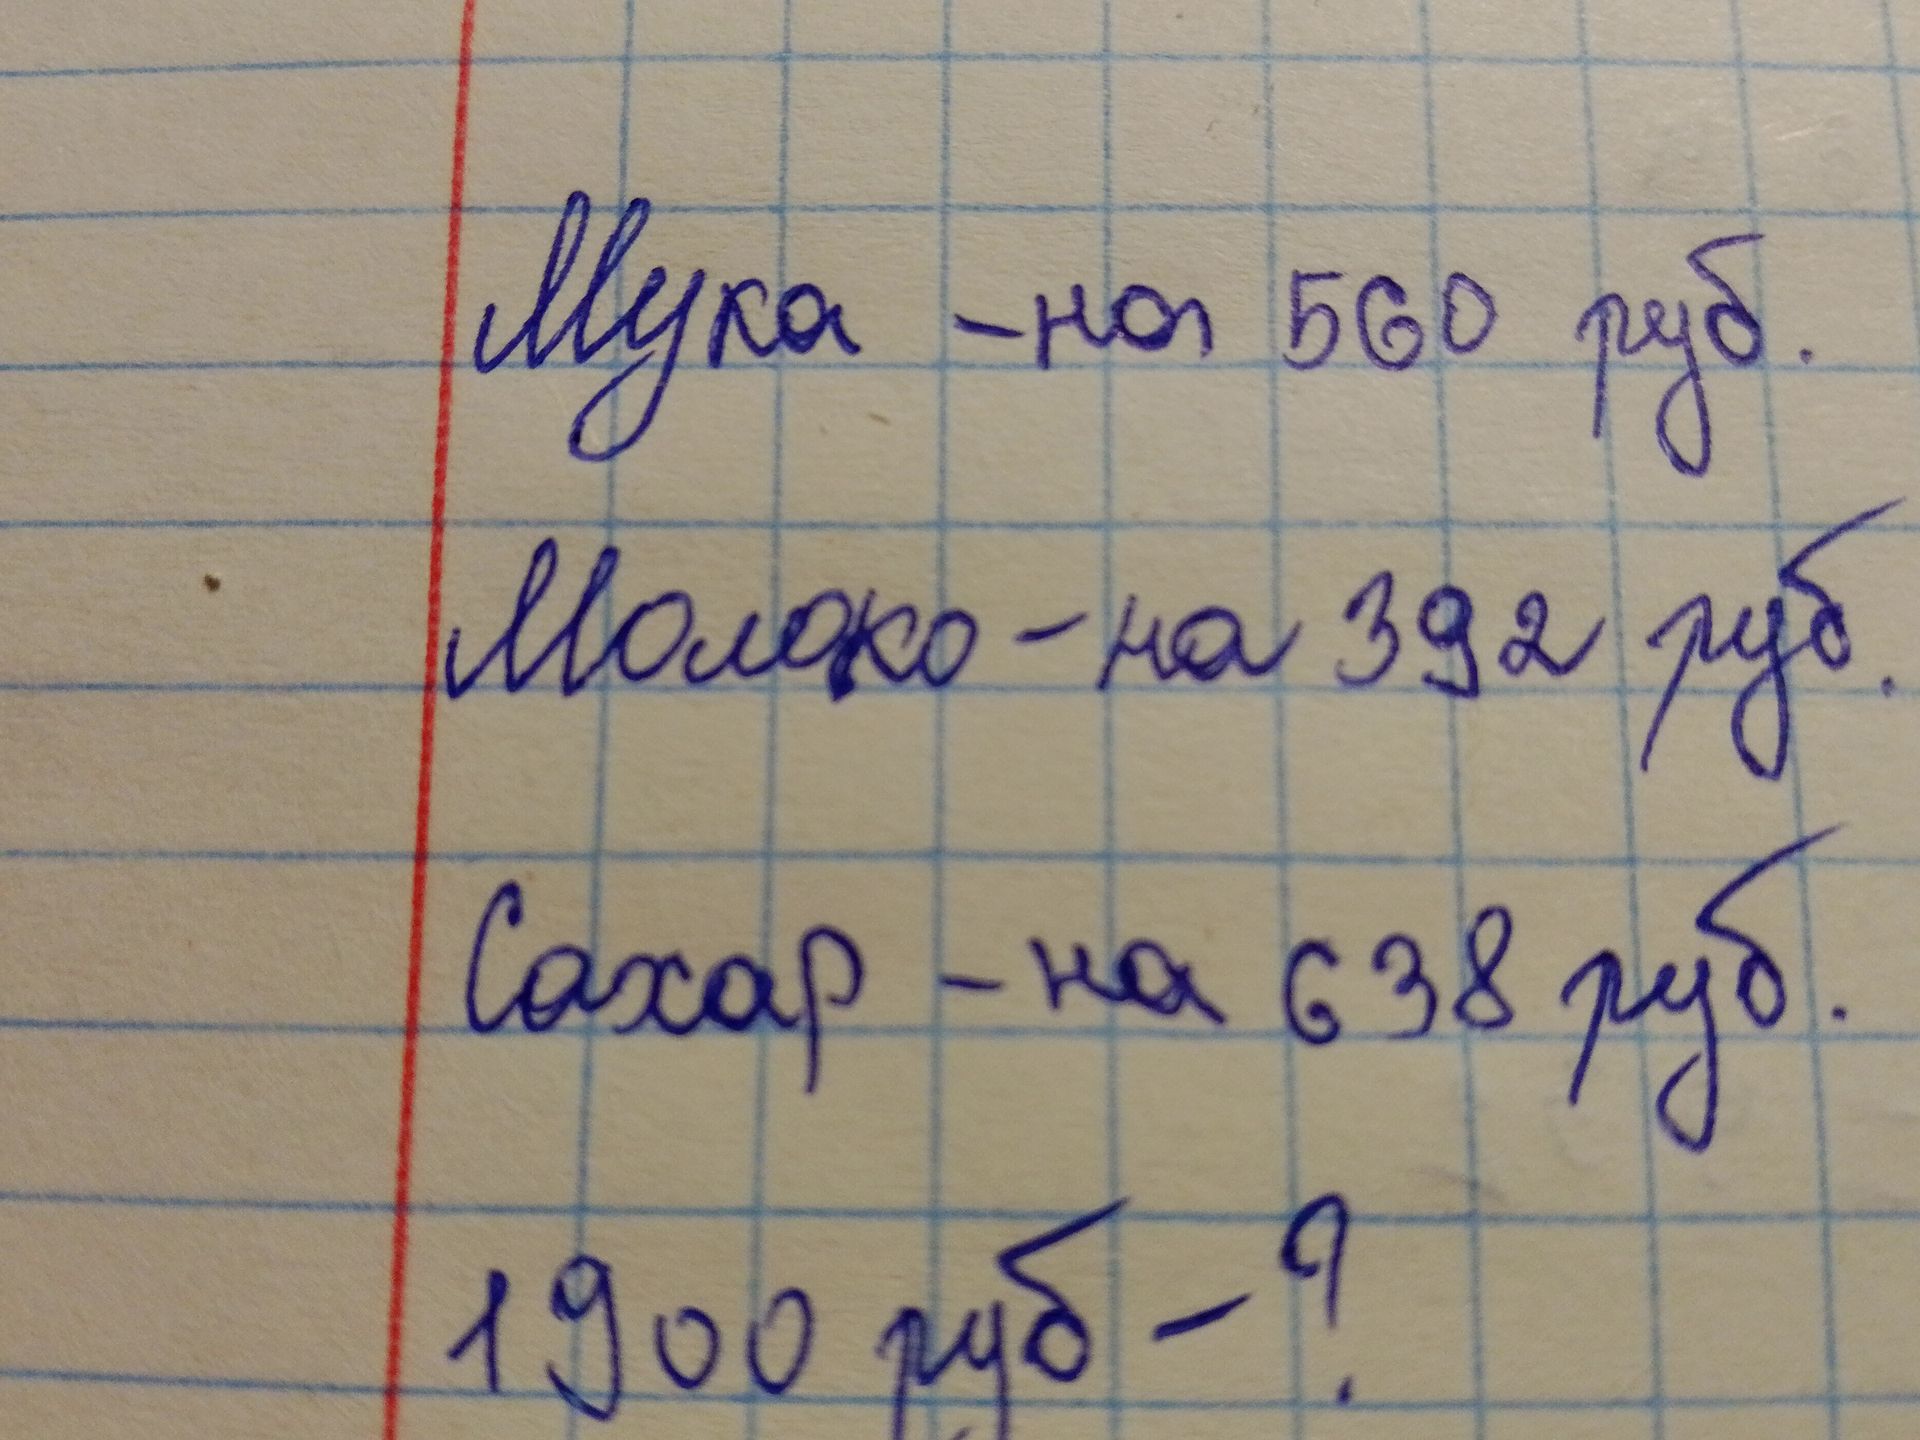 Мука - на 560 руб.
Молоко - на 392 руб.
Сахар - на 638 руб.
1900 руб - ?